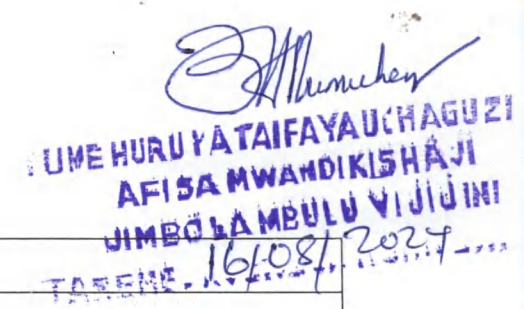 TUME HURU YA TAIFA YA UCHAGUZI
AFISA MWANDIKISHAJI
JIMBO LA MBULU VIJIJINI
TAREHE. 16/08/2024